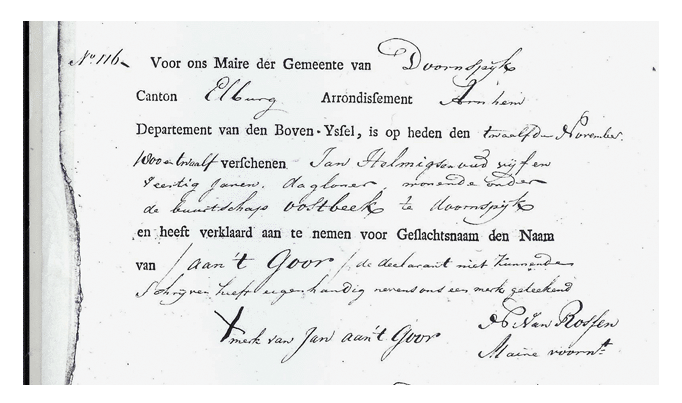 No. 116. Voor ons Maire der Gemeente van Doornspyk
Canton Elburg Arrondissement Arnhem
Departement van den Boven-Yssel, is op heden den twaalfden November.
1800 en twaalf verschenen Jan Helmigsen oud vijf en
veertig Jaren. dagloner, wonende onder
de buurtschap oostbeek te doornspyk
en heeft verklaard aan te nemen voor Geslachtsnaam den Naam
van / aan't Goor / de declarant niet kunnende
Schryven heeft eigenhandig nevens ons een merk geteekend
X merk van Jan aan't Goor
Van Rossen
Maire voornt